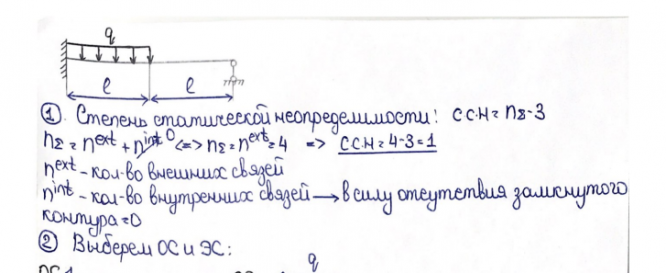 q
l l
① Степень статической неопределимости: ССН = nΣ-3
nΣ = n^ext + n^int 0 <=> nΣ = n^ext = 4 => ССН = 4-3 = 1
n^ext - кол-во внешних связей
n^int - кол-во внутренних связей → в силу отсутствия замкнутого
контура = 0
② Выберем ОС и ЭС:
q